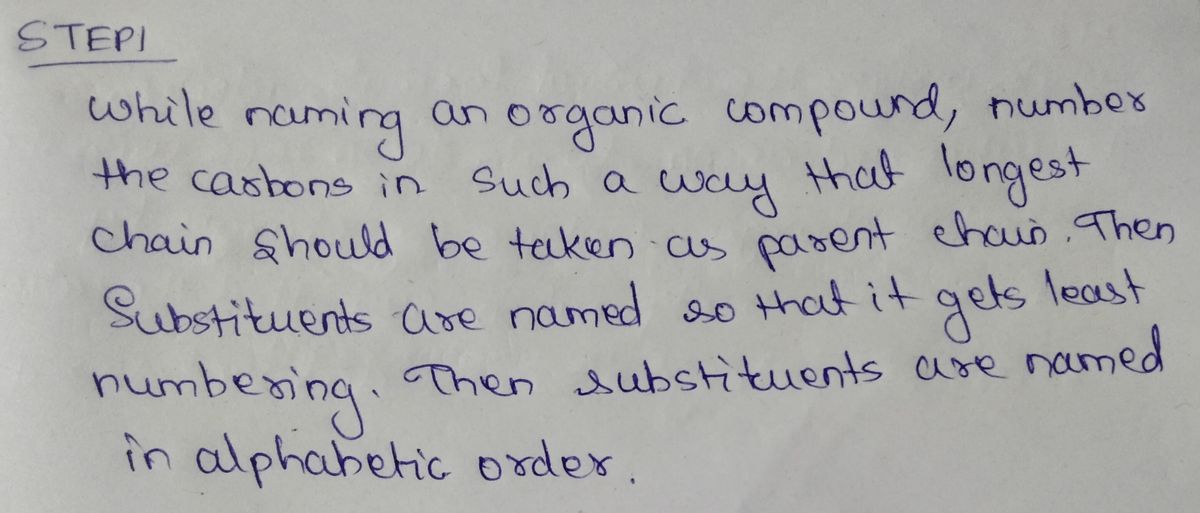 STEP1
while naming an organic compound, number
the carbons in such a way that longest
chain should be taken as parent chain. Then
Substituents are named so that it gets least
numbering. Then substituents are named
in alphabetic order.